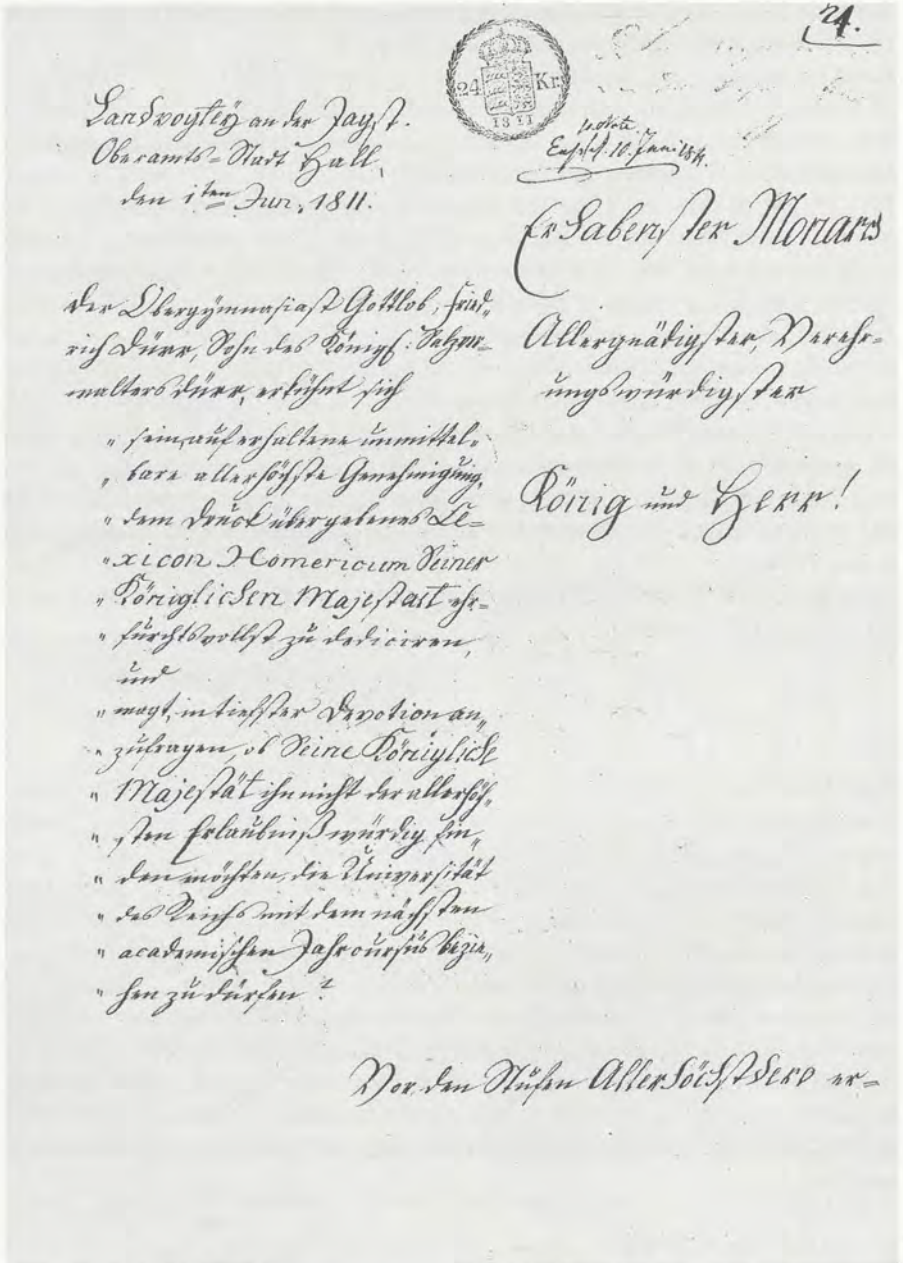 24.
24 Kr.
1811
Landvogtey an der Jagst.
Oberamts-Stadt Hall,
den 1ten Jun. 1811.
10. Juni 1811.
Erhabenster Monarch
Der Obergymnasiast Gottlob, Fried-
rich Dürr, Sohn des Königl: Salzver-
walters Dürr, erkühnt sich
Allergnädigster, Verehr-
ungswürdigster
König und Herr!
" sein, auf erhaltene unmittel-
" bare allerhöchste Genehmigung,
" dem Druck übergebenes Le-
" xicon Homericum Seiner
" Königlichen Majestaet ehr-
" furchtsvollst zu dediciren,
und
" wagt, in tiefster Devotion an-
" zufragen, ob Seine Königliche
" Majestät ihn nicht der allerhöch-
" sten Erlaubniß würdig fin-
" den möchten, die Universität
" des Reichs mit dem nächsten
" academischen Jahrcursus bezie-
" hen zu dürfen?
Vor den Stufen Allerhöchstdero er-